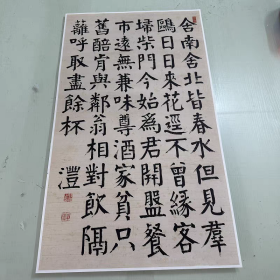 舍南舍北皆春水但見羣
鷗日日來花逕不曾緣客
埽柴門今始爲君開盤餐
市遠無兼味尊酒家貧只
舊醅肯與鄰翁相對飲隔
蘺呼取盡餘杯 澧